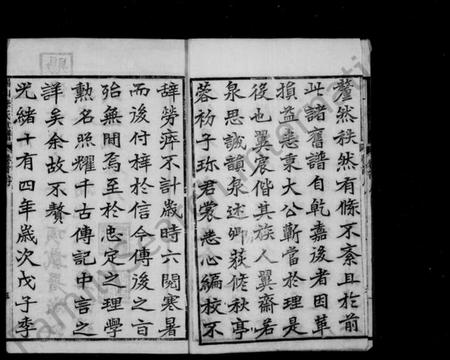 釐然秩然有條不紊且於前
此諸舊譜自乾嘉後者因革
損益悉東大公蘄當於理是
後也翼宸偕其族人翼齋若
泉思誠韻泉述卿荻修秋亭
蓉初子珍君裳悉心編校不
辭勞瘁不計歲時六閱寒暑
而後付梓於信今傳後之言
殆無閒焉至於忠定之理學
勲名照耀千古傳記中言之
詳矣余故不贅
光緒十有四年歲次戊子季